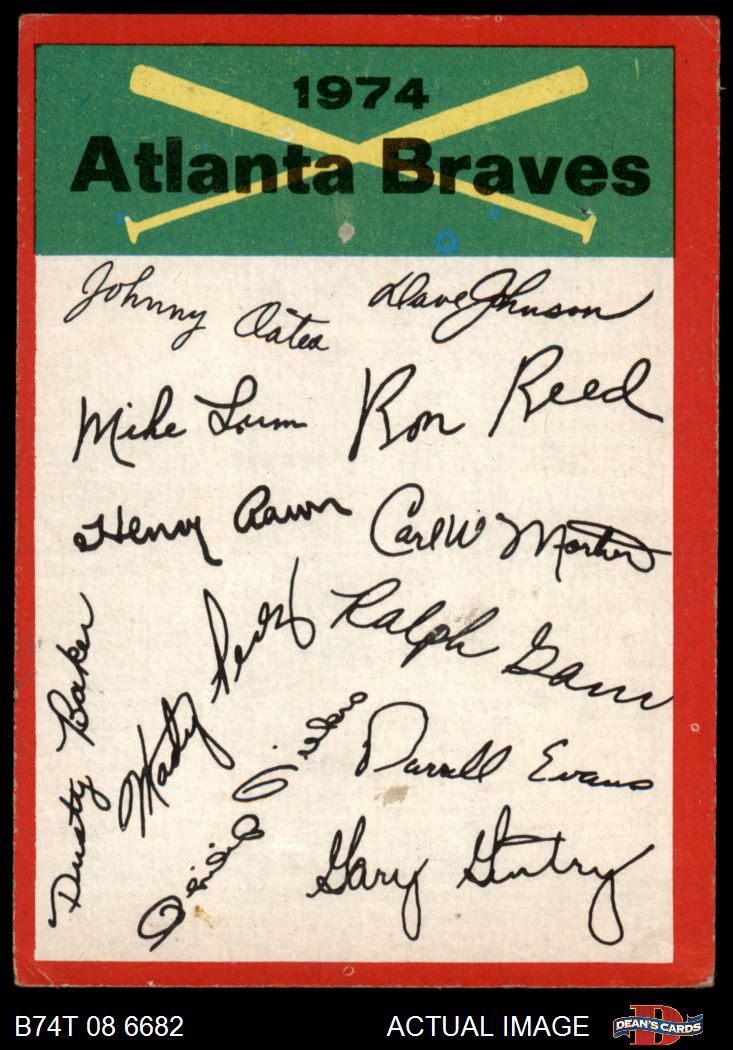 1974
Atlanta Braves
Johnny Oates
Dave Johnson
Mike Lum
Ron Reed
Henry Aaron
Carl W Morton
Ralph Garr
Dusty Baker
Marty Perez
Darrell Evans
Gary Gentry
B74T 08 6682
ACTUAL IMAGE
D
DEAN'S CARDS